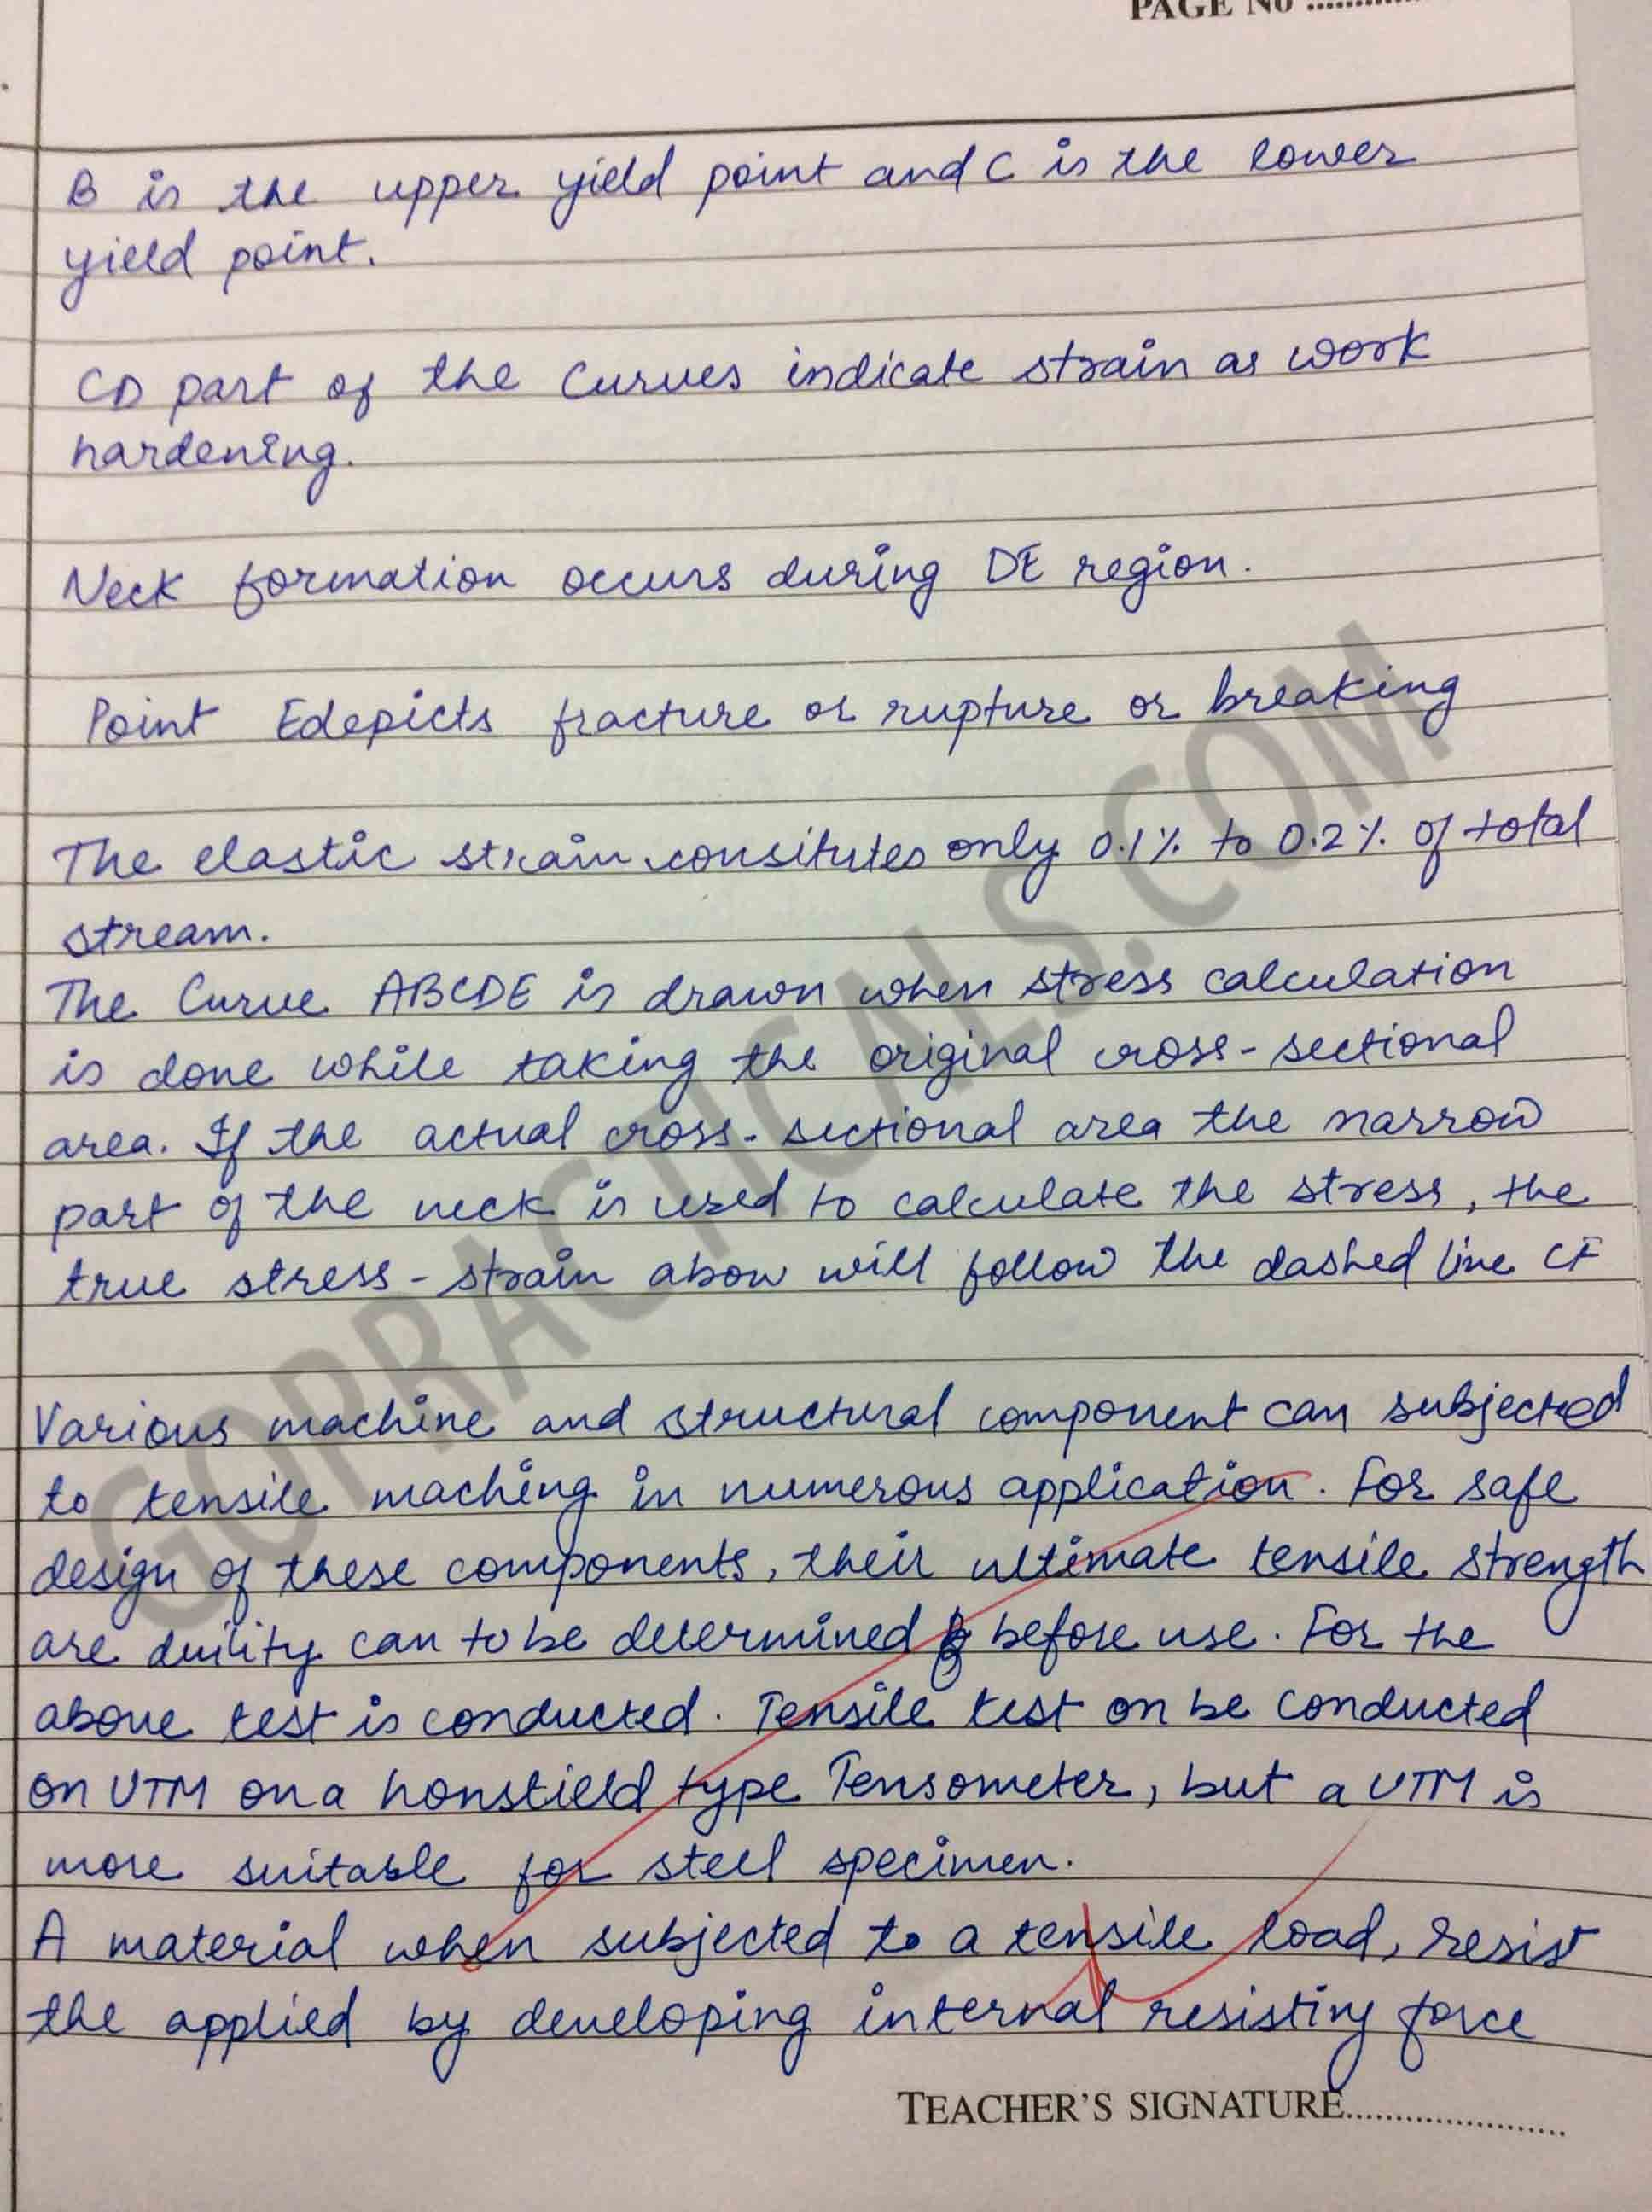 PAGE No ..............
B is the upper yield point and C is the lower
yield point.
CD part of the Curves indicate strain as work
hardening.
Neck formation occurs during DE region.
Point Edepicts fracture or rupture or breaking
The elastic strain consitutes only 0.1% to 0.2% of total
stream.
The Curve ABCDE is drawn when stress calculation
is done while taking the original cross-sectional
area. If the actual cross-sectional area the narrow
part of the neck is used to calculate the stress, the
true stress-strain abow will follow the dashed line CF
Various machine and structural component can subjected
to tensile maching in numerous application. For safe
design of these components, their ultimate tensile strength
are duility can to be determined before use. For the
above test is conducted. Tensile test on be conducted
on UTM on a honstield type Tensometer, but a UTM is
more suitable for steel specimen.
A material when subjected to a tensile load, resist
the applied by developing internal resisting force
TEACHER'S SIGNATURE......................
GOPRACTICALS.COM